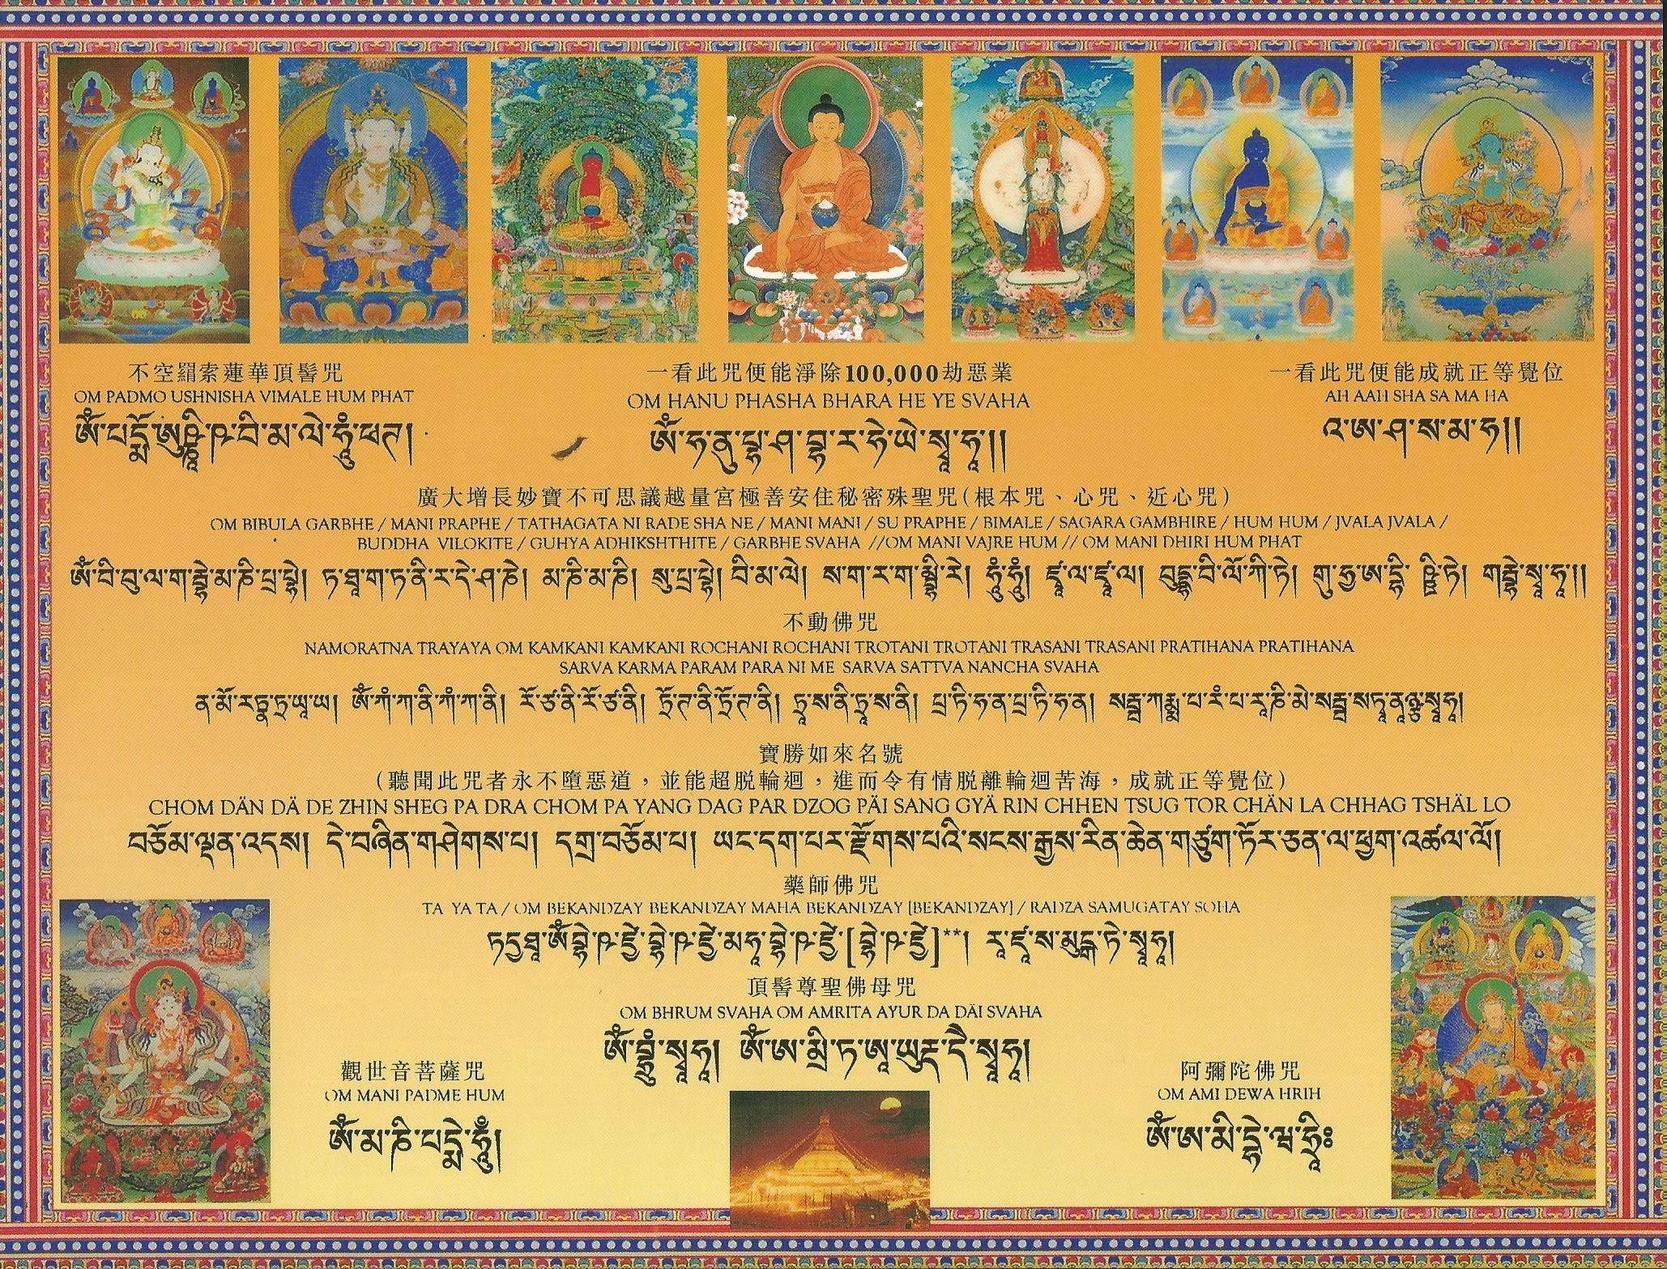 不空羂索蓮華頂髻咒
OM PADMO USHNISHA VIMALE HUM PHAT
ༀ་པདྨོ་ཨུཥྞཱི་ཥ་བི་མ་ལེ་ཧཱུྃ་ཕཊ།
一看此咒便能淨除100,000劫惡業
OM HANU PHASHA BHARA HE YE SVAHA
ༀ་ཧ་ནུ་པྷ་ཤ་བྷ་ར་ཧེ་ཡེ་སྭཱ་ཧཱ།།
一看此咒便能成就正等覺位
AH AAH SHA SA MA HA
འ་ཨ་ཤ་ས་མ་ཧ།།
廣大增長妙寶不可思議越量宮極善安住秘密殊聖咒(根本咒、心咒、近心咒)
OM BIBULA GARBHE / MANI PRAPHE / TATHAGATA NI RADE SHA NE / MANI MANI / SU PRAPHE / BIMALE / SAGARA GAMBHIRE / HUM HUM / JVALA JVALA /
BUDDHA VILOKITE / GUHYA ADHIKSHTHITE / GARBHE SVAHA //OM MANI VAJRE HUM // OM MANI DHIRI HUM PHAT
ༀ་བི་པུ་ལ་ག་རྦྷེ་མ་ཎི་པྲ་བྷེ། ཏ་ཐཱ་ག་ཏ་ནི་ར་དེ་ཤ་ནེ། མ་ཎི་མ་ཎི། སུ་པྲ་བྷེ། བི་མ་ལེ། ས་ག་ར་ག་མྦྷི་རེ། ཧཱུྃ་ཧཱུྃ། ཛྭ་ལ་ཛྭ་ལ། བུདྡྷ་བི་ལོ་ཀི་ཏེ། གུ་ཧྱ་ཨ་དྷི་ཥྛི་ཏེ། གརྦྷེ་སྭཱ་ཧཱ།།
不動佛咒
NAMORATNA TRAYAYA OM KAMKANI KAMKANI ROCHANI ROCHANI TROTANI TROTANI TRASANI TRASANI PRATIHANA PRATIHANA
SARVA KARMA PARAM PARA NI ME SARVA SATTVA NANCHA SVAHA
ན་མོ་རཏྣ་ཏྲ་ཡཱ་ཡ། ༀ་ཀཾ་ཀ་ནི་ཀཾ་ཀ་ནི། རོ་ཙ་ནི་རོ་ཙ་ནི། ཏྲོ་ཊ་ནི་ཏྲོ་ཊ་ནི། ཏྲཱ་ས་ནི་ཏྲཱ་ས་ནི། པྲ་ཏི་ཧ་ན་པྲ་ཏི་ཧ་ན། སརྦ་ཀརྨ་པ་རཾ་པ་རཱ་ཎི་མེ་སརྦ་སཏྭཱ་ནཱཉྩ་སྭཱཧཱ།
寶勝如來名號
(聽聞此咒者永不墮惡道,並能超脱輪迴,進而令有情脱離輪迴苦海,成就正等覺位)
CHOM DÄN DÄ DE ZHIN SHEG PA DRA CHOM PA YANG DAG PAR DZOG PÄI SANG GYÄ RIN CHHEN TSUG TOR CHÄN LA CHHAG TSHÄL LO
བཅོམ་ལྡན་འདས། དེ་བཞིན་གཤེགས་པ། དགྲ་བཅོམ་པ། ཡང་དག་པར་རྫོགས་པའི་སངས་རྒྱས་རིན་ཆེན་གཙུག་ཏོར་ཅན་ལ་ཕྱག་འཚལ་ལོ།
藥師佛咒
TA YA TA / OM BEKANDZAY BEKANDZAY MAHA BEKANDZAY [BEKANDZAY] / RADZA SAMUGATAY SOHA
ཏདྱ་ཐཱ་ༀ་བྷེ་ཥ་ཛྱེ་བྷེ་ཥ་ཛྱེ་མཧཱ་བྷེ་ཥ་ཛྱེ་[བྷེ་ཥ་ཛྱེ]**། རཱ་ཛཱ་ས་མུདྒ་ཏེ་སྭཱཧཱ།
頂髻尊聖佛母咒
OM BHRUM SVAHA OM AMRITA AYUR DA DÄI SVAHA
ༀ་བྷྲཱུྃ་སྭཱཧཱ། ༀ་ཨ་མྲྀ་ཏ་ཨཱ་ཡུརྡ་དེ་སྭཱཧཱ།
觀世音菩薩咒
OM MANI PADME HUM
ༀ་མ་ཎི་པདྨེ་ཧཱུྃ།
阿彌陀佛咒
OM AMI DEWA HRIH
ༀ་ཨ་མི་དྷེ་ཝ་ཧྲཱིཿ